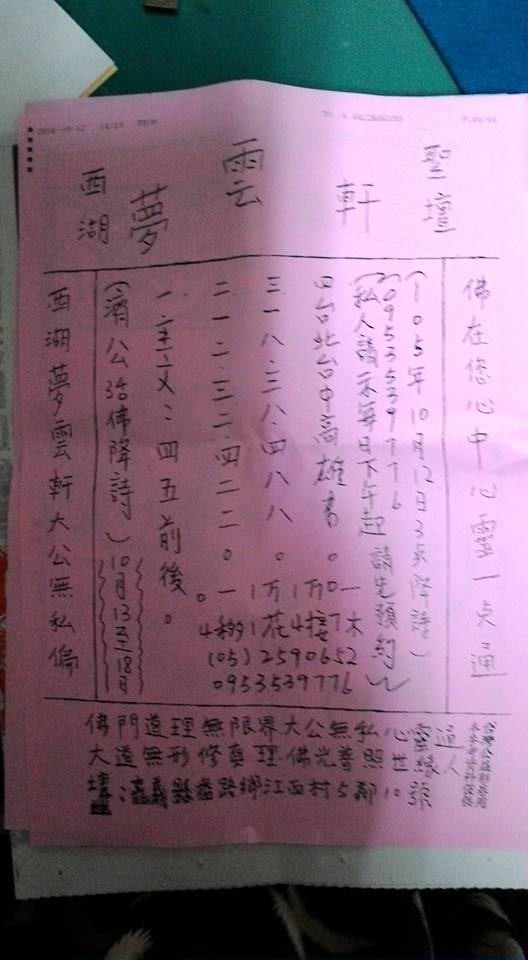 2016-10-12
聖壇
雲軒
西湖夢
佛在您心中心靈一点通
(一0五年10月12日3点降詩)
(0953539776
(私人請示每日下午起請先預約)
四台北台中高雄書。
三一八.三八.四八八。
二一二.三二.四二二。
一主文:四五前後。
(濟公活佛降詩)10月13至18日
西湖夢雲軒大公無私偏
(05)2590652
0953539776
佛門道理無限界大公無私心靈通
大道無形修真理佛光普照世緣人
壇:嘉義縣番路鄉江西村5鄰10號